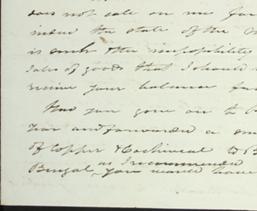 does not sale on me for
indeed the state of the
is such the impossibility
sales of goods that I should
receive your balance
Had you gone on to
Year and forwarded a
of Copper & Cochineal to B
as I recommended
Bengal, you would have